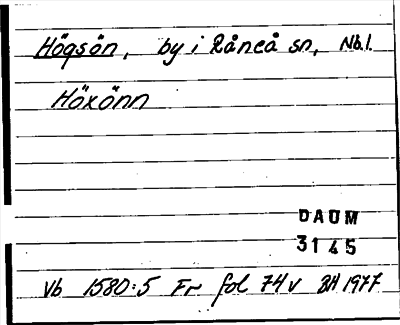 Högsön, by i Råneå sn, Nb.l.
Höxönn
DAUM
3145
Vb 1580:5 Fr fol 74v BH 1977